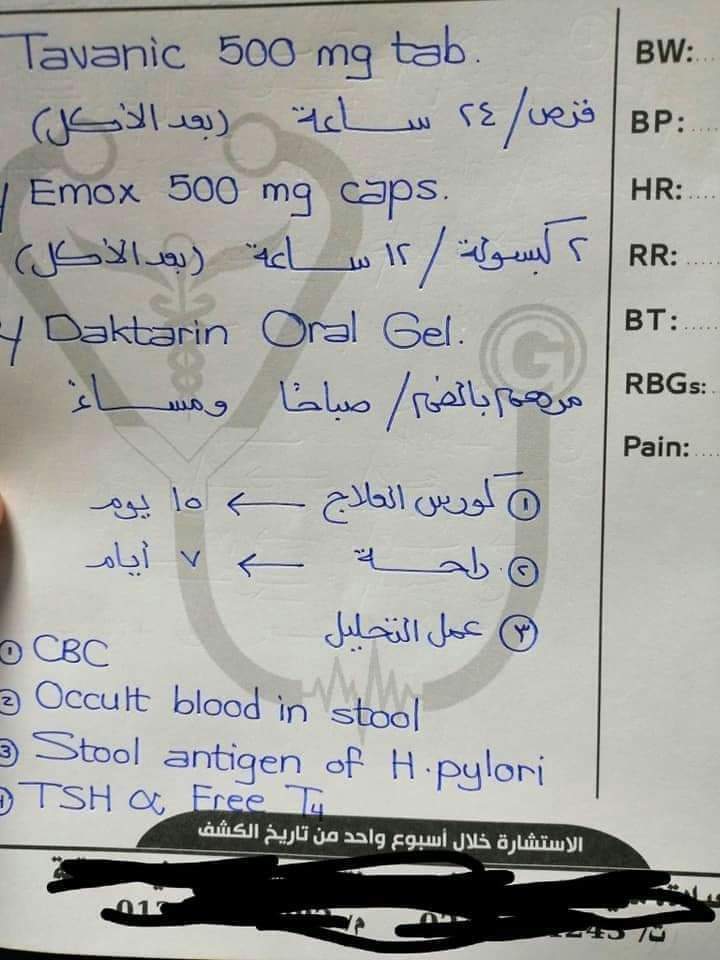 Tavanic 500 mg tab.
قرص/ ٢٤ ساعة (بعد الأكل)
Emox 500 mg caps.
٢ كبسولة / ١٢ ساعة (بعد الأكل)
Daktarin Oral Gel.
مرهم بالفم/ صباحًا ومساءً
① كورس العلاج ← ١٥ يوم
② راحة ← ٧ أيام
③ عمل التحليل
① CBC
② Occult blood in stool
③ Stool antigen of H.pylori
④ TSH & Free T4
BW:....
BP:....
HR:....
RR:....
BT:....
RBGs:.
Pain:....
G
الاستشارة خلال أسبوع واحد من تاريخ الكشف